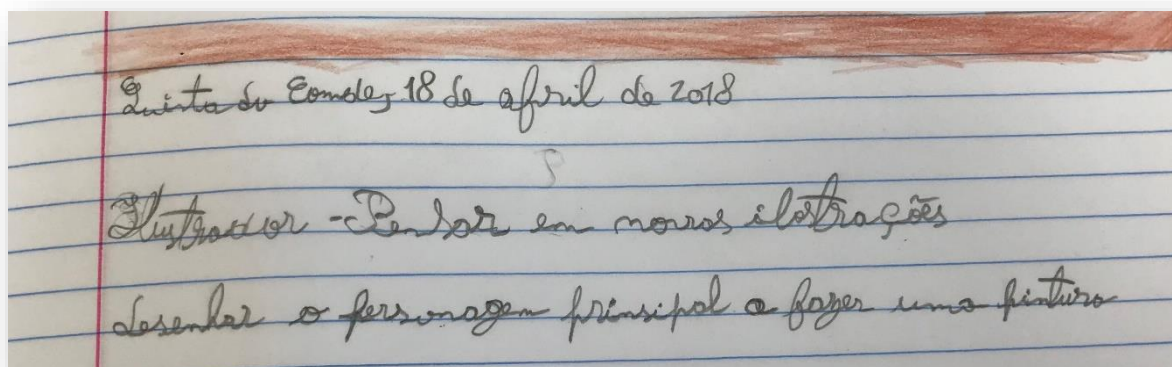 Quinta do Conde, 18 de abril de 2018
Ilustrador - Pensar em novas ilostrações
desenhar o personagem prinsipal a fazer uma pintura